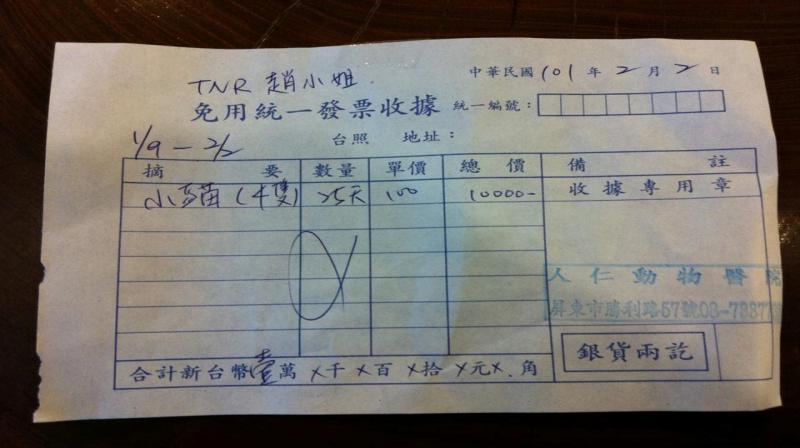 TNR 趙小姐
中華民國101年2月2日
免用統一發票收據 統一編號：
1/9 - 2/2 台照 地址：
摘要 數量 單價 總價 備註
小貓(4隻) 25天 100 10000- 收據專用章
人仁動物醫院
屏東市勝利路57號08-7337
銀貨兩訖
合計新台幣壹萬×千×百×拾×元×.角